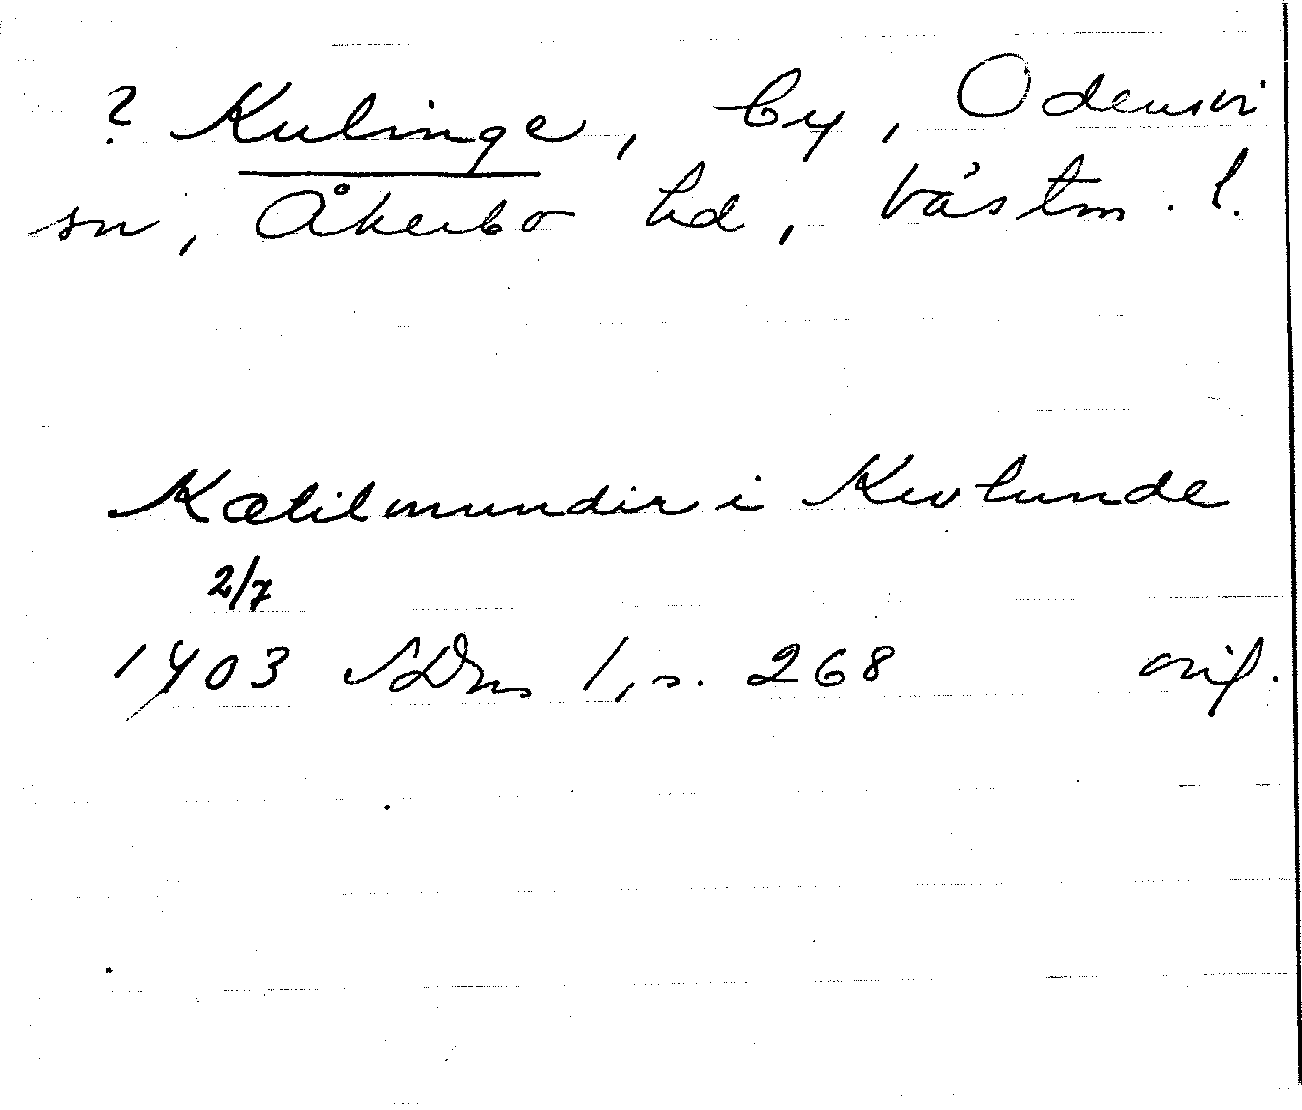 ? Kulinge, by, Odensvi
sn, Åkerbo hd, Västm. l.
Kætilmundir i Kwlunde
2/7
1403 SDns 1, s. 268 orig.